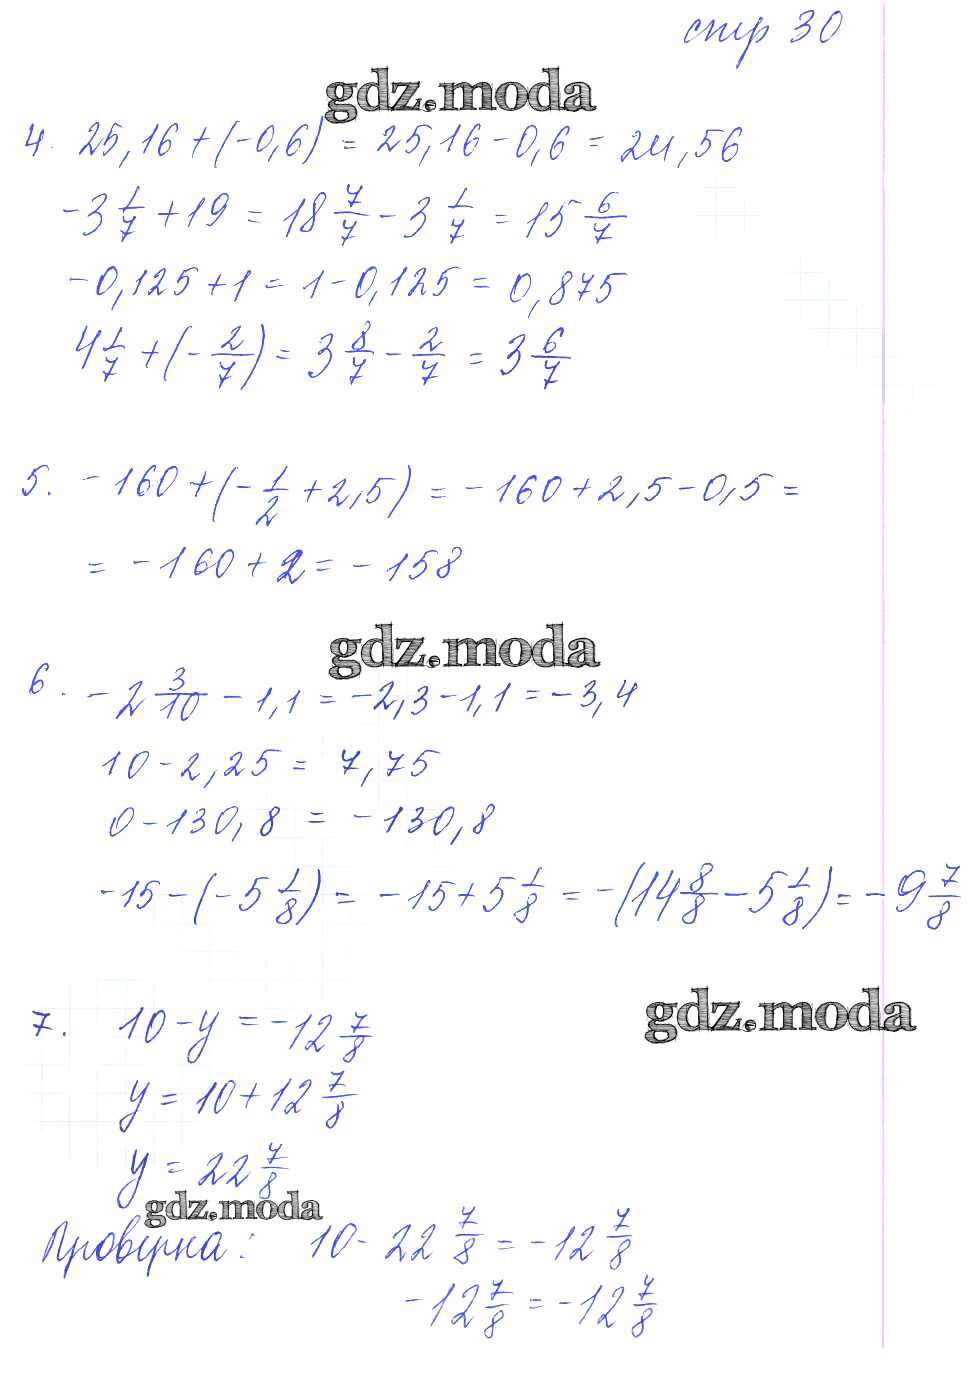 стр 30
gdz.moda
4. 25,16 + (-0,6) = 25,16 - 0,6 = 24,56
-3 1/7 + 19 = 18 7/7 - 3 1/7 = 15 6/7
-0,125 + 1 = 1 - 0,125 = 0,875
4 1/7 + (- 2/7) = 3 8/7 - 2/7 = 3 6/7
5. -160 + (- 1/2 + 2,5) = -160 + 2,5 - 0,5 =
= -160 + 2 = -158
gdz.moda
6. -2 3/10 - 1,1 = -2,3 - 1,1 = -3,4
10 - 2,25 = 7,75
0 - 130,8 = -130,8
-15 - (-5 1/8) = -15 + 5 1/8 = -(14 8/8 - 5 1/8) = -9 7/8
gdz.moda
7. 10 - y = -12 7/8
y = 10 + 12 7/8
y = 22 7/8
gdz.moda
Проверка: 10 - 22 7/8 = -12 7/8
-12 7/8 = -12 7/8